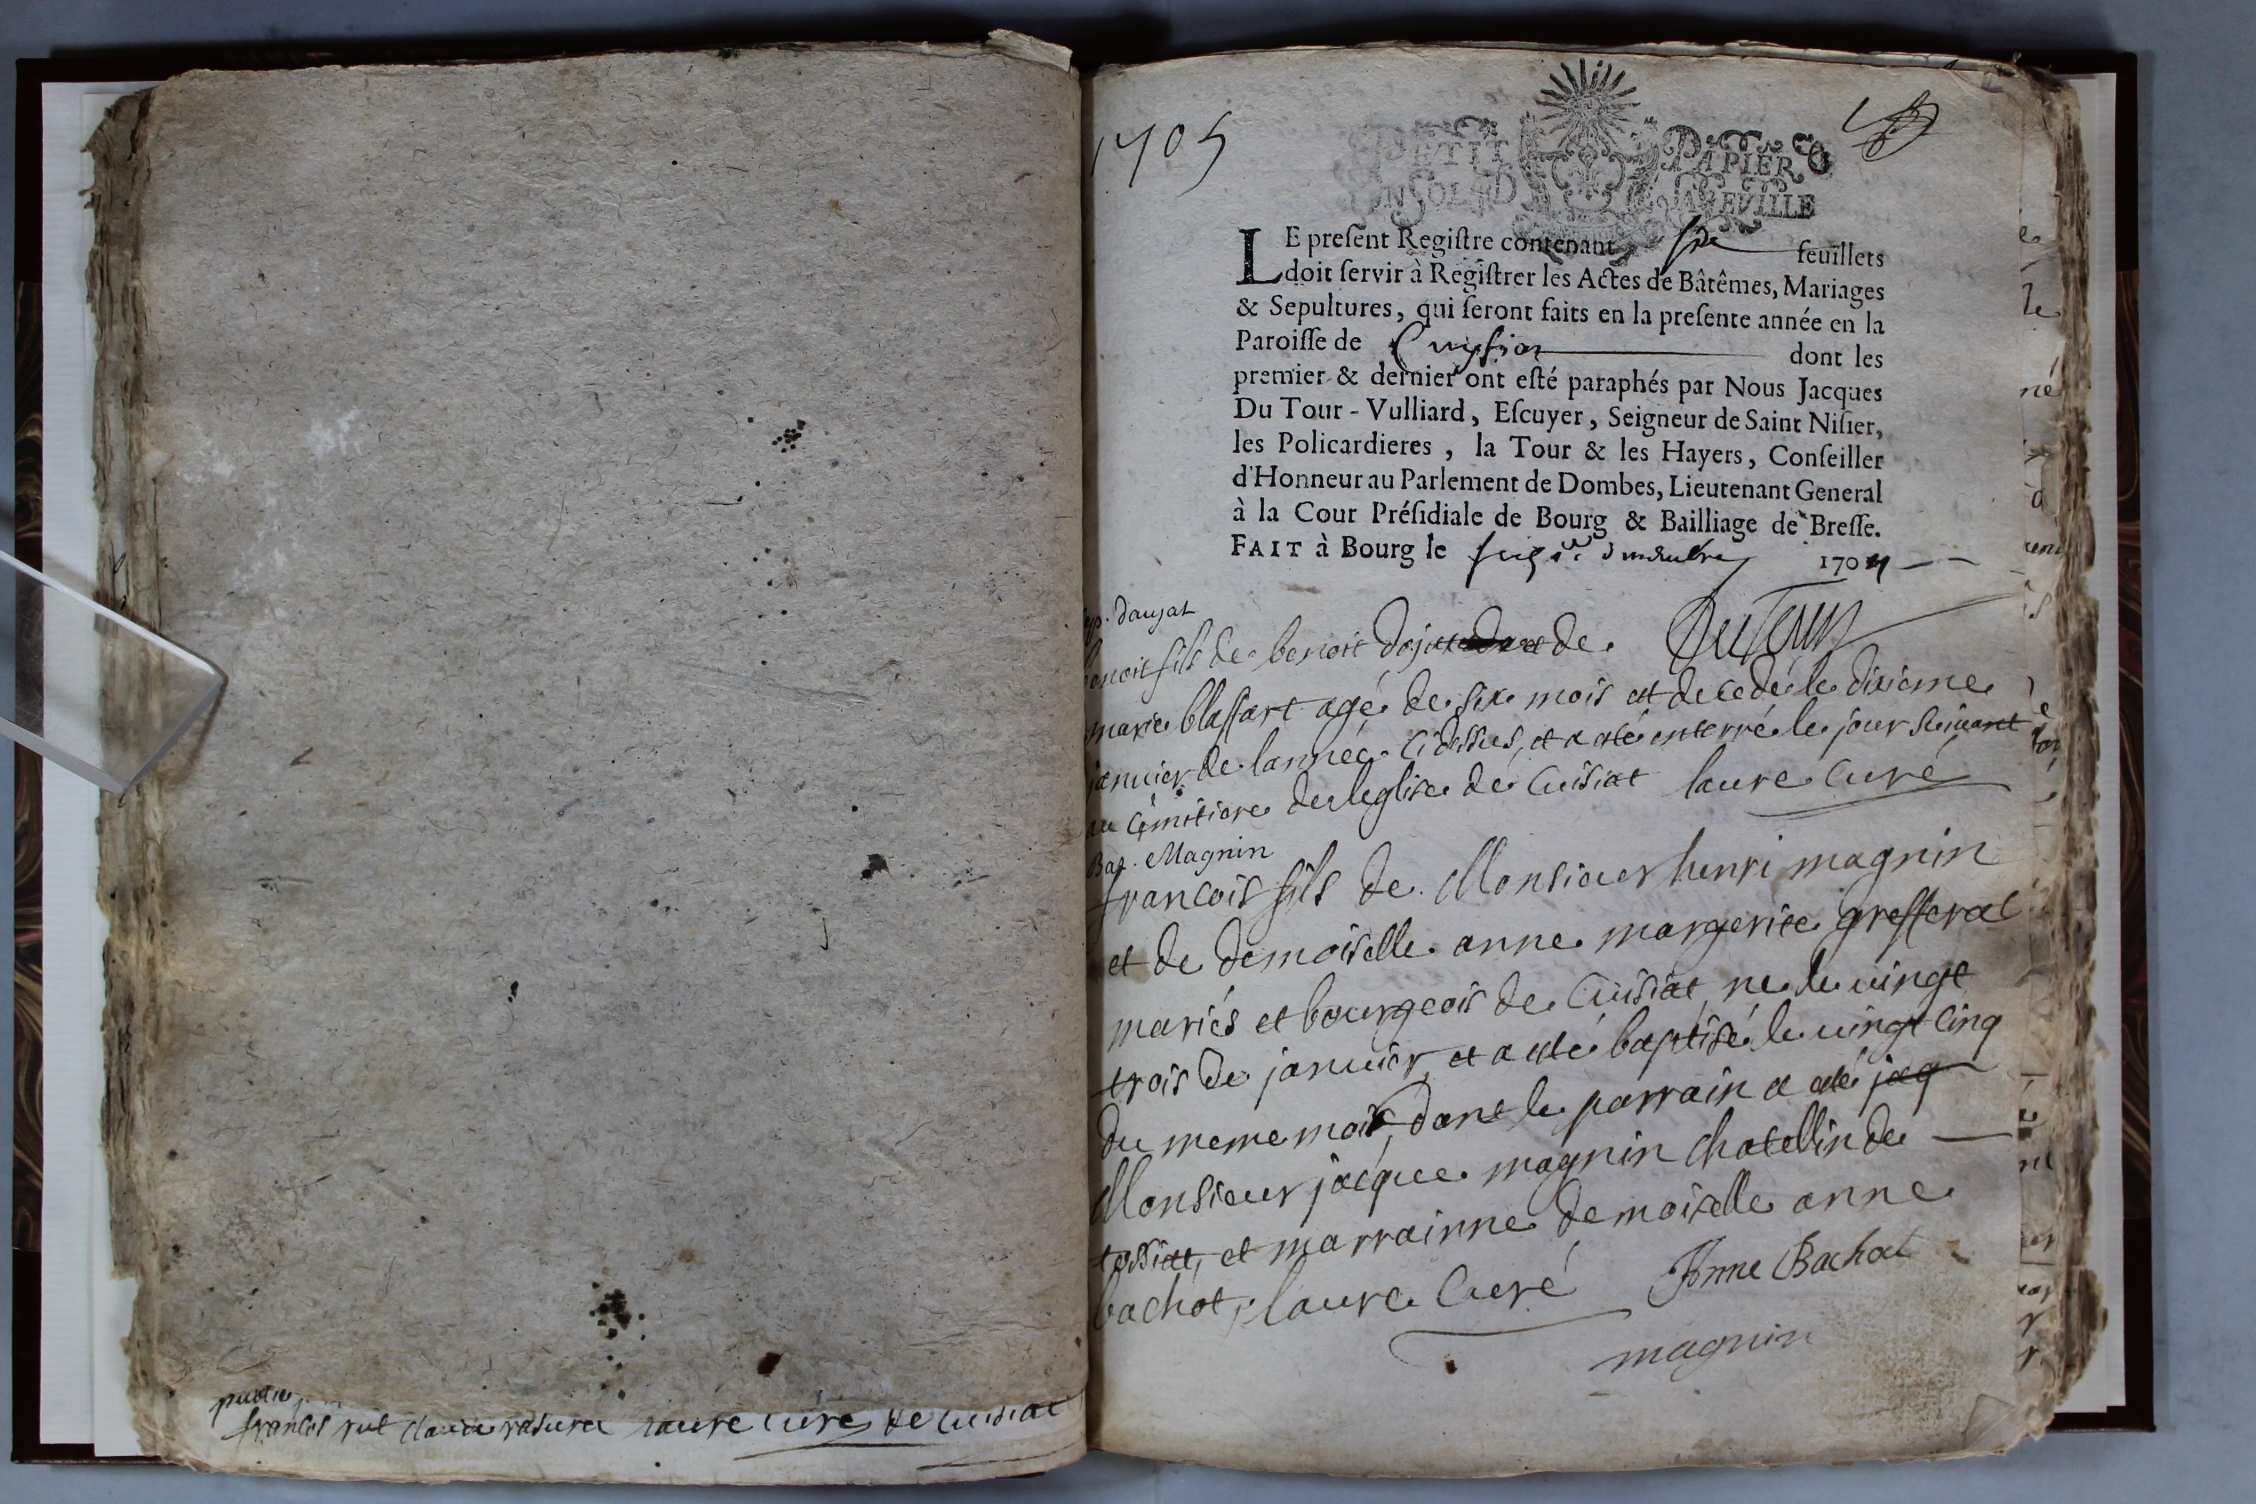 françois claude laure curé de cuisiat
1705
PETIT PAPIER
UN SOL 4 D LA FEUILLE
LE preſent Regiſtre contenant six feuillets
doit ſervir à Regiſtrer les Actes de Bâtêmes, Mariages
& Sepultures, qui ſeront faits en la preſente année en la
Paroiſſe de Cuysia dont les
premier & dernier ont eſté paraphés par Nous Jacques
Du Tour-Vulliard, Eſcuyer, Seigneur de Saint Niſier,
les Policardieres, la Tour & les Hayers, Conſeiller
d'Honneur au Parlement de Dombes, Lieutenant General
à la Cour Préſidiale de Bourg & Bailliage de Breſſe.
FAIT à Bourg le 1704
DuTour
benoit fils de benoit de
marie blassart agé de six mois est decedé le dixieme
januier de lannée cidessus, et a esté enterré le jour suiuant
au cémitiere de leglise de Cuisiat laure curé
Bap. Magnin
francois fils de Monsieur henri magnin
et de demoiselle anne margerite grefferat
mariés et bourgeois de Cuisiat ne le uingt
trois de januier, et a esté baptisé le uingt cinq
du meme mois, dont le parrain a esté jaq
Monsieur jacque magnin chatellin de
tossiat, et marrainne demoiselle anne
bachot, laure Curé Anne Bachat
magnin